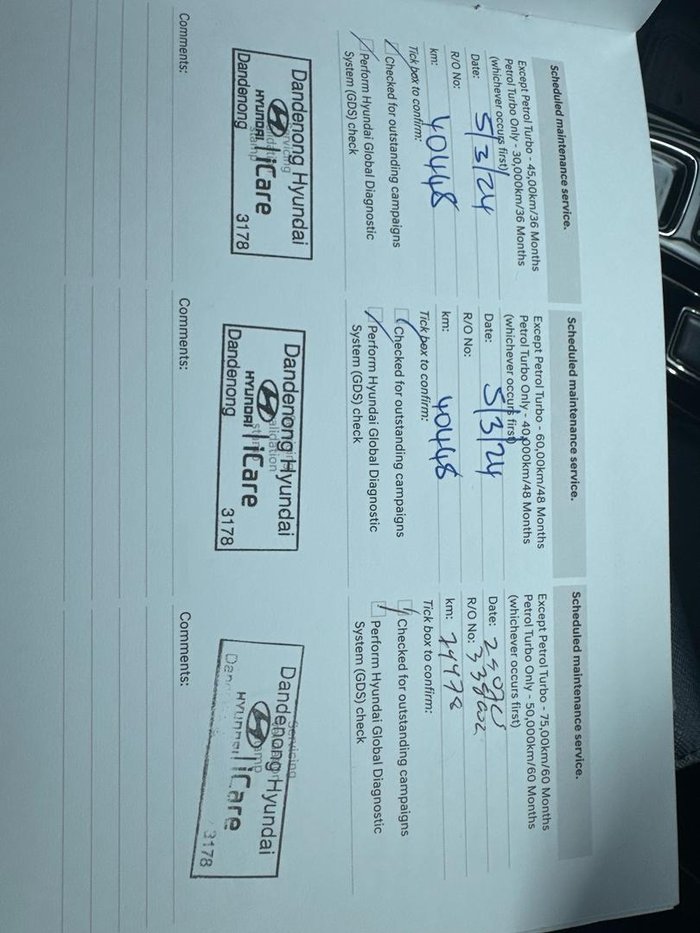 Scheduled maintenance service.
Except Petrol Turbo - 45,00km/36 Months
Petrol Turbo Only - 30,000km/36 Months
(whichever occurs first)
Date: 5/3/24
R/O No:
km: 40448
Tick box to confirm:
Checked for outstanding campaigns
Perform Hyundai Global Diagnostic
System (GDS) check
Dandenong Hyundai
HYUNDAI iCare
Dandenong 3178
Comments:
Scheduled maintenance service.
Except Petrol Turbo - 60,00km/48 Months
Petrol Turbo Only - 40,000km/48 Months
(whichever occurs first)
Date: 5/3/24
R/O No:
km: 40448
Tick box to confirm:
Checked for outstanding campaigns
Perform Hyundai Global Diagnostic
System (GDS) check
Dandenong Hyundai
HYUNDAI iCare
Dandenong 3178
Comments:
Scheduled maintenance service.
Except Petrol Turbo - 75,00km/60 Months
Petrol Turbo Only - 50,000km/60 Months
(whichever occurs first)
Date:
R/O No:
km:
Tick box to confirm:
Checked for outstanding campaigns
Perform Hyundai Global Diagnostic
System (GDS) check
Servicing
Dandenong Hyundai
HYUNDAI iCare
3178
Comments: